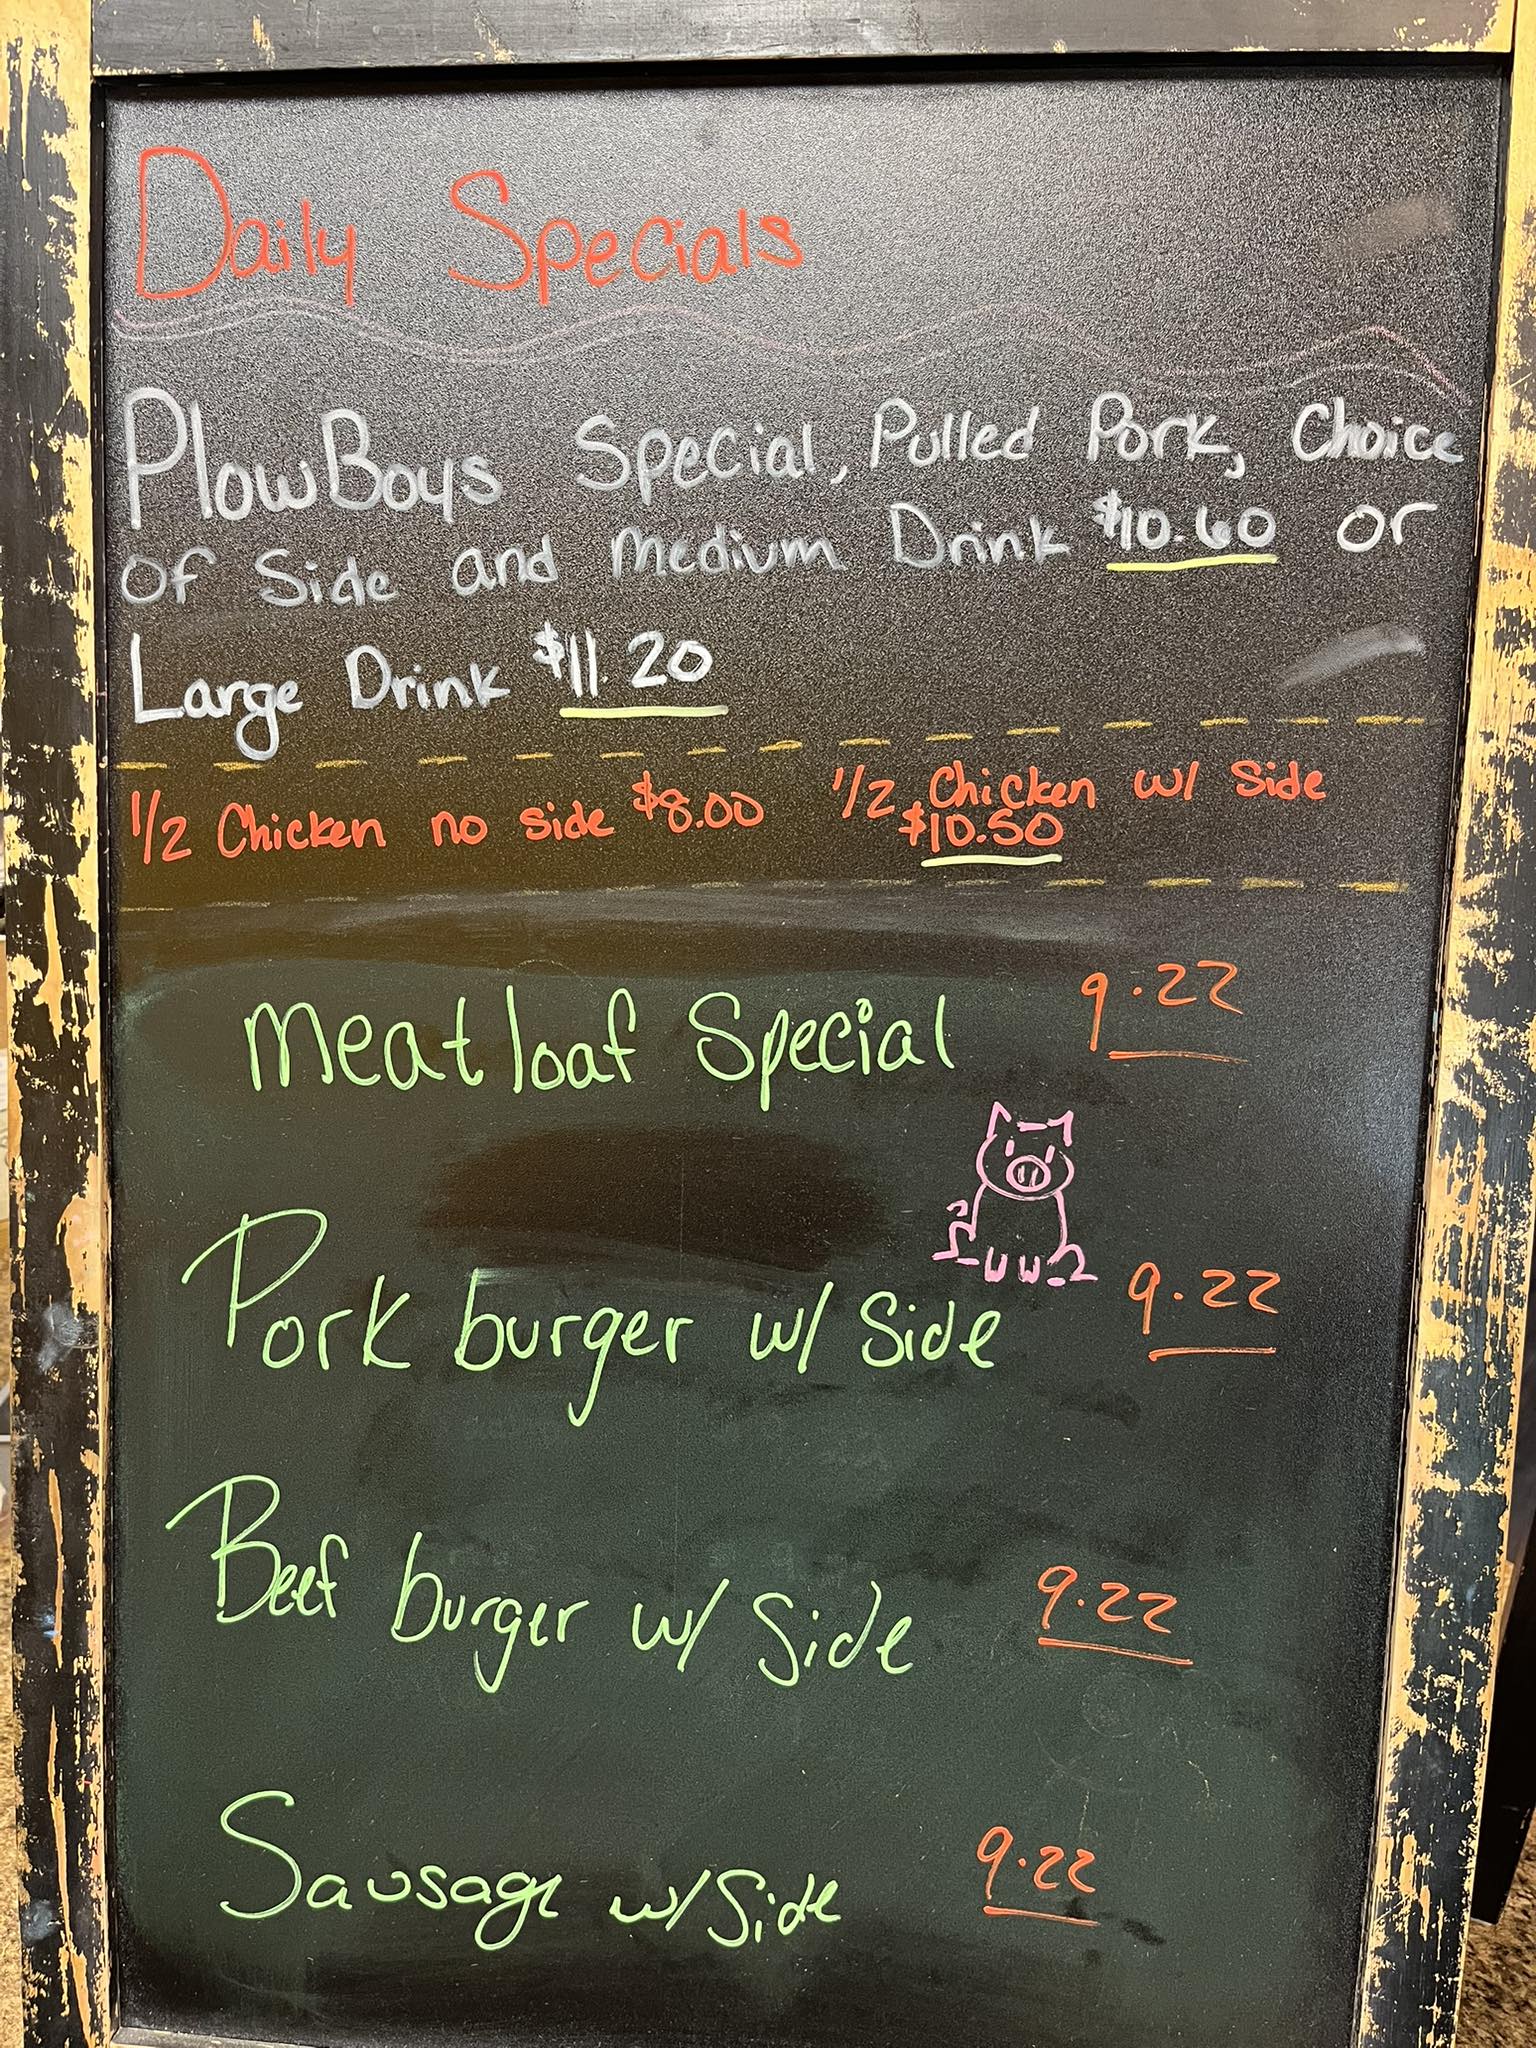 Daily Specials
PlowBoys Special, Pulled Pork, Choice
of Side and Medium Drink $10.60 or
Large Drink $11.20
1/2 Chicken no side $8.00
1/2 Chicken w/ Side
$10.50
Meatloaf Special 9.22
Pork burger w/ Side 9.22
Beef burger w/ Side 9.22
Sausage w/ Side 9.22